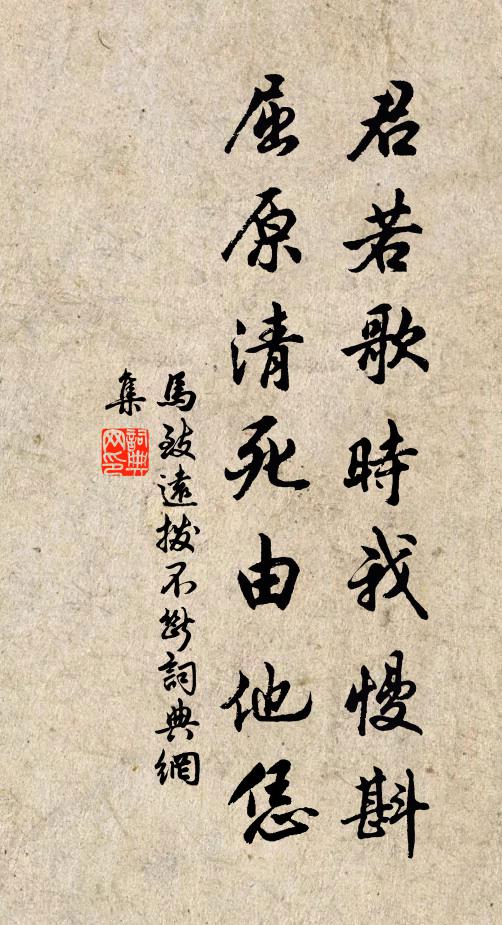 君若歌時我慢斟
屈原清死由他恁
馬致遠撥不斷詞典網
集
詞典
网印